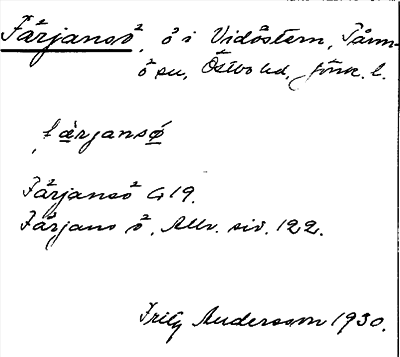 Färjansö, ö i Vidöstern, Tånn-
ö sn, Östbo hd, Jönk. l.
färjansø
Färjansö G 19.
Färjans ö, Allv. siv. 122.
Fritz Andersson 1930.